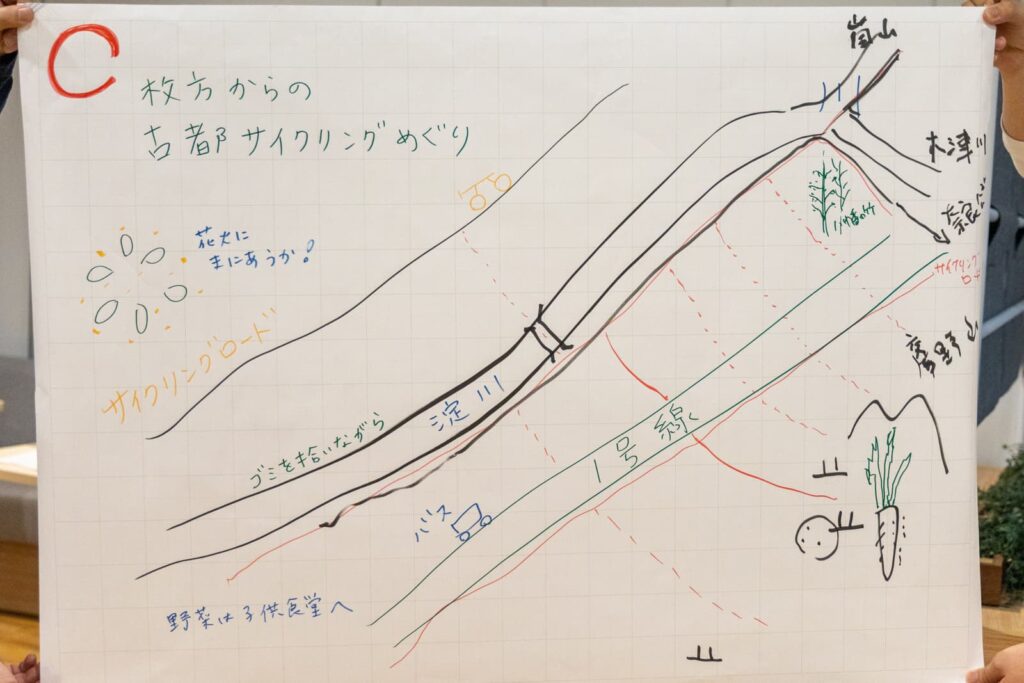 C
枚方からの
古都サイクリングめぐり
嵐山
木津川
奈良へ
八幡の竹
サイクリング
ロード
花火に
まにあうか!
サイクリングロード
ゴミを拾いながら
淀川
1号線
バス
野菜は子供食堂へ